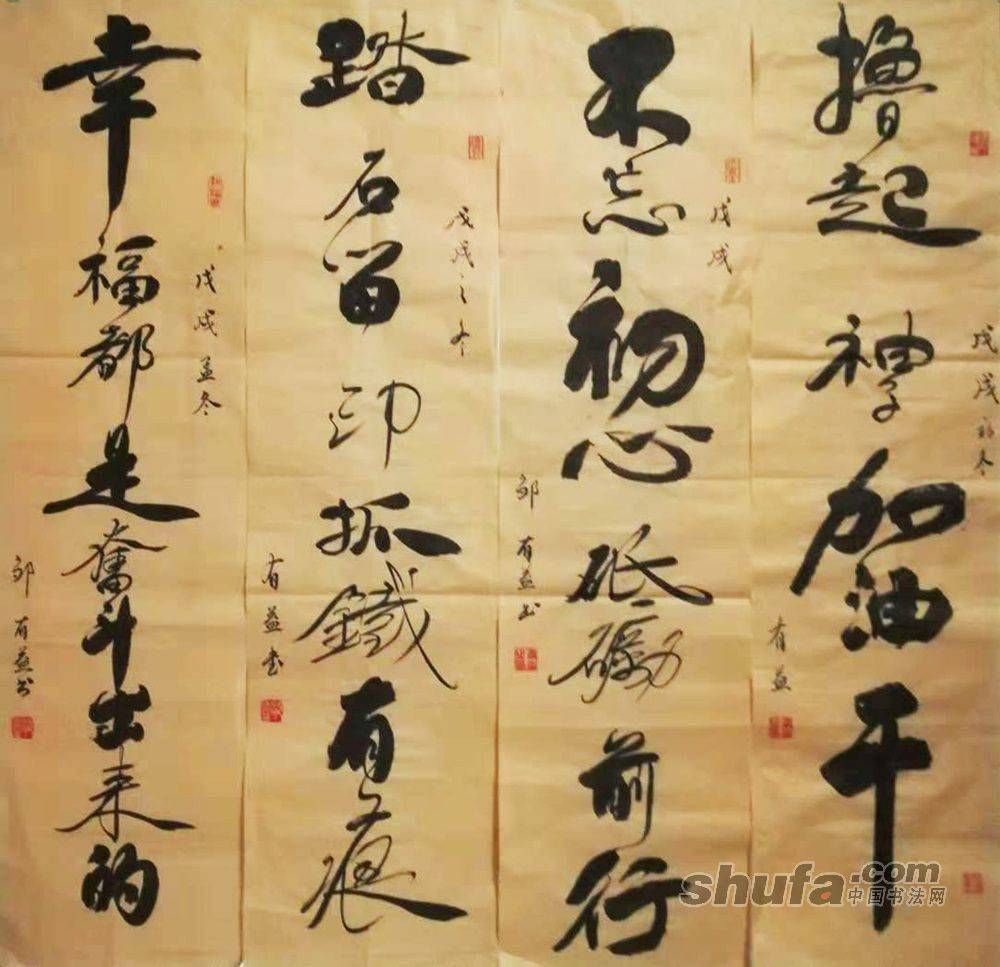 擼起袖子加油干
戊戌冬
有益
不忘初心砥砺前行
戊戌
邹有益书
踏石留印抓鐵有痕
戊戌之冬
有益书
幸福都是奮斗出来的
戊戌孟冬
邹有益书
shufa.com
中国书法网